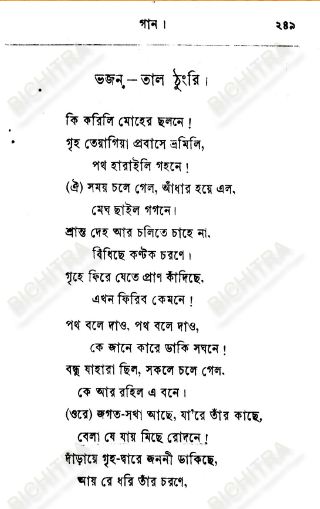 গান।
২৪৯
ভজন – তাল ঠুংরি।
কি করিলি মোহের ছলনে!
গৃহ তেয়াগিয়া প্রবাসে ভ্রমিলি,
পথ হারাইলি গহনে!
(ঐ) সময় চলে গেল, আঁধার হয়ে এল,
মেঘ ছাইল গগনে।
শ্রান্ত দেহ আর চলিতে চাহে না,
বিঁধিছে কণ্টক চরণে।
গৃহে ফিরে যেতে প্রাণ কাঁদিছে,
এখন ফিরিব কেমনে!
পথ বলে দাও, পথ বলে দাও,
কে জানে কারে ডাকি সঘনে!
বন্ধু যাহারা ছিল, সকলে চলে গেল,
কে আর রহিল এ বনে।
(ওরে) জগত-সখা আছে, যা'রে তাঁর কাছে,
বেলা যে যায় মিছে রোদনে!
দাঁড়ায়ে গৃহ-দ্বারে জননী ডাকিছে,
আয় রে ধরি তাঁর চরণে,
BICHITRA
BICHITRA
BICHITRA
BICHITRA
BICHITRA
BICHITRA